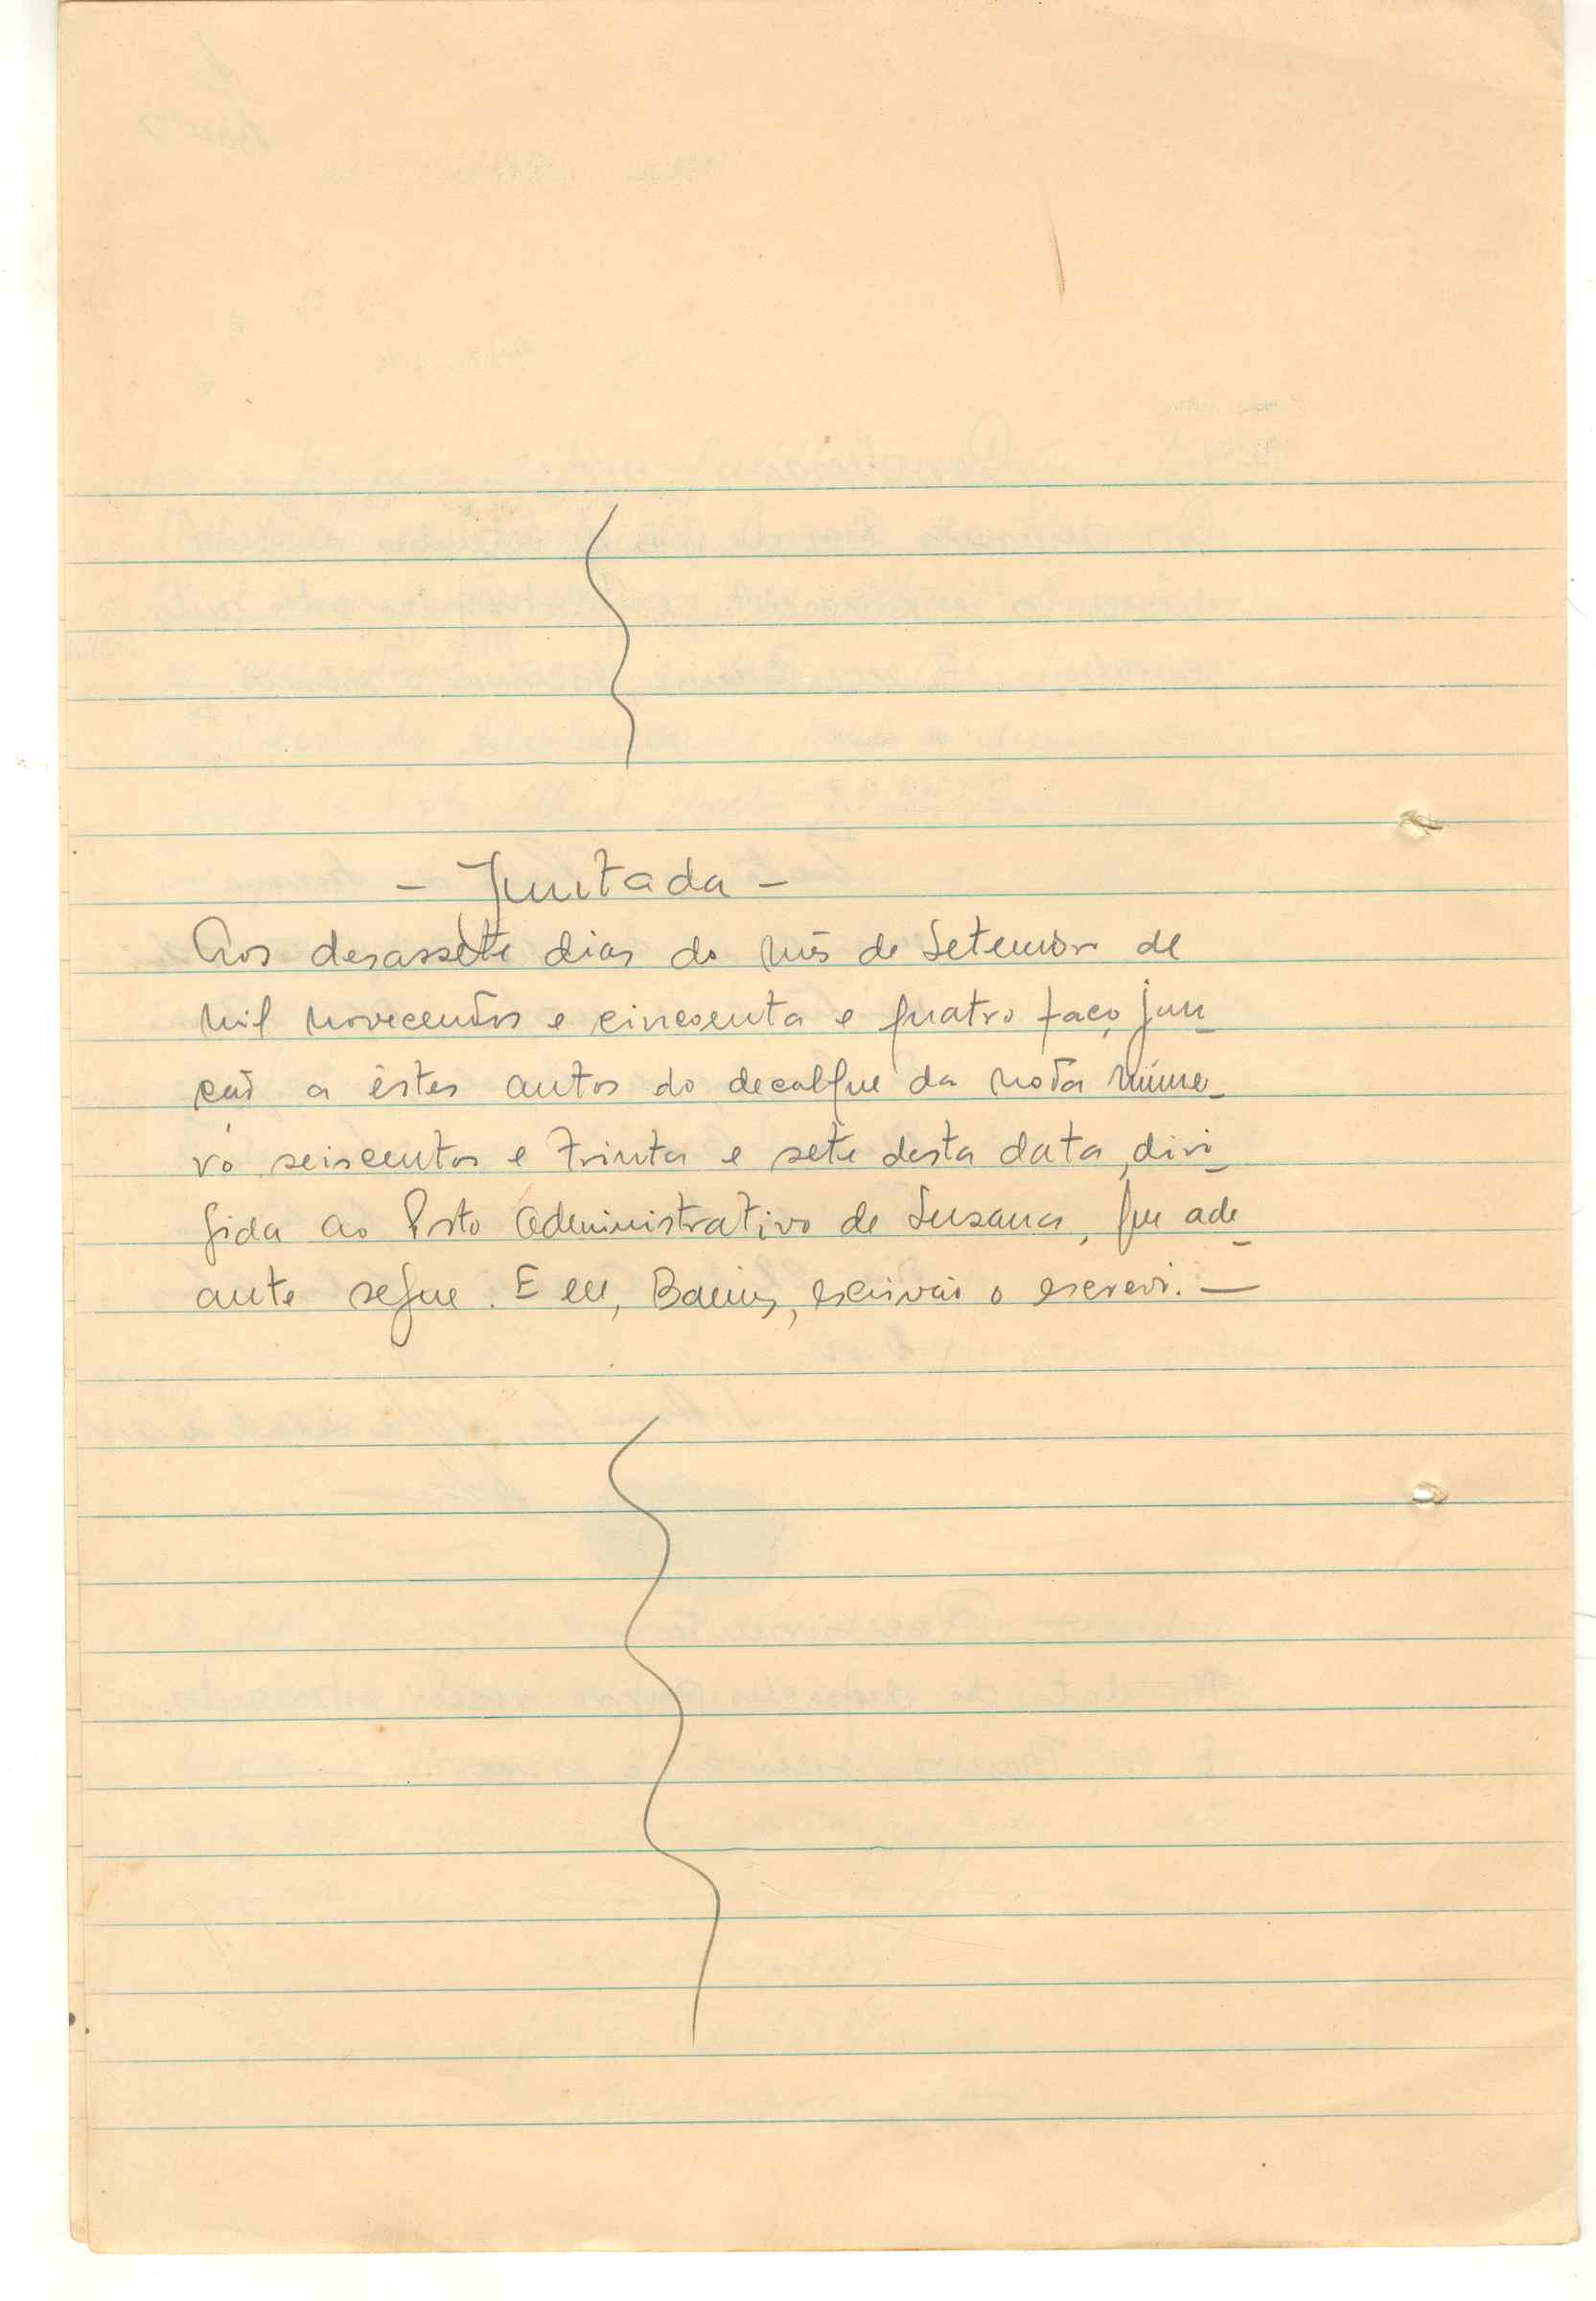 - Juntada -
Aos desassete dias do mês de Setembro de
mil novecentos e cincoenta e quatro faço jun-
ção a êstes autos do decalque da nota núme-
ro seiscentos e trinta e sete desta data, diri-
gida ao Posto Administrativo de Susana, que ade-
ante segue. E eu, escrivão o escrevi. —